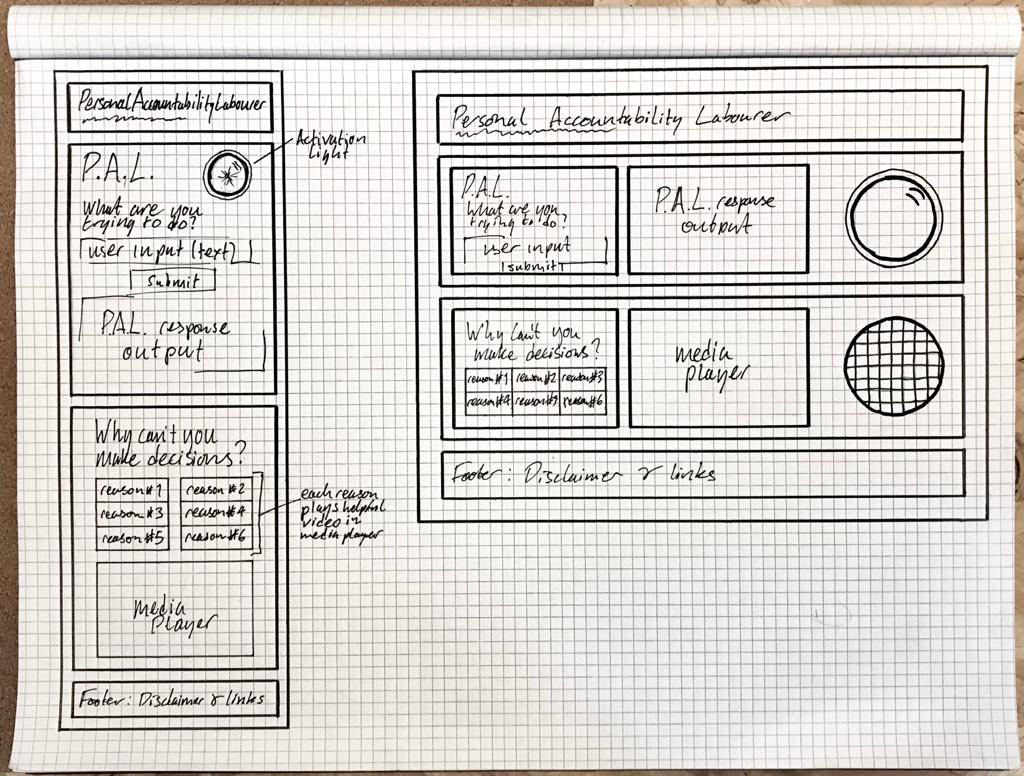 Personal Accountability Labourer
P.A.L.
Activation
light
What are you
trying to do?
user input (text)
submit
P.A.L. response
output
Why can't you
make decisions?
reason #1 reason #2
reason #3 reason #4
reason #5 reason #6
each reason
plays helpful
video in
media player
media
player
Footer: Disclaimer & links
Personal Accountability Labourer
P.A.L.
What are you
trying to do?
user input
submit
P.A.L. response
output
Why can't you
make decisions?
reason #1 reason #2 reason #3
reason #4 reason #6
media
player
Footer: Disclaimer & links